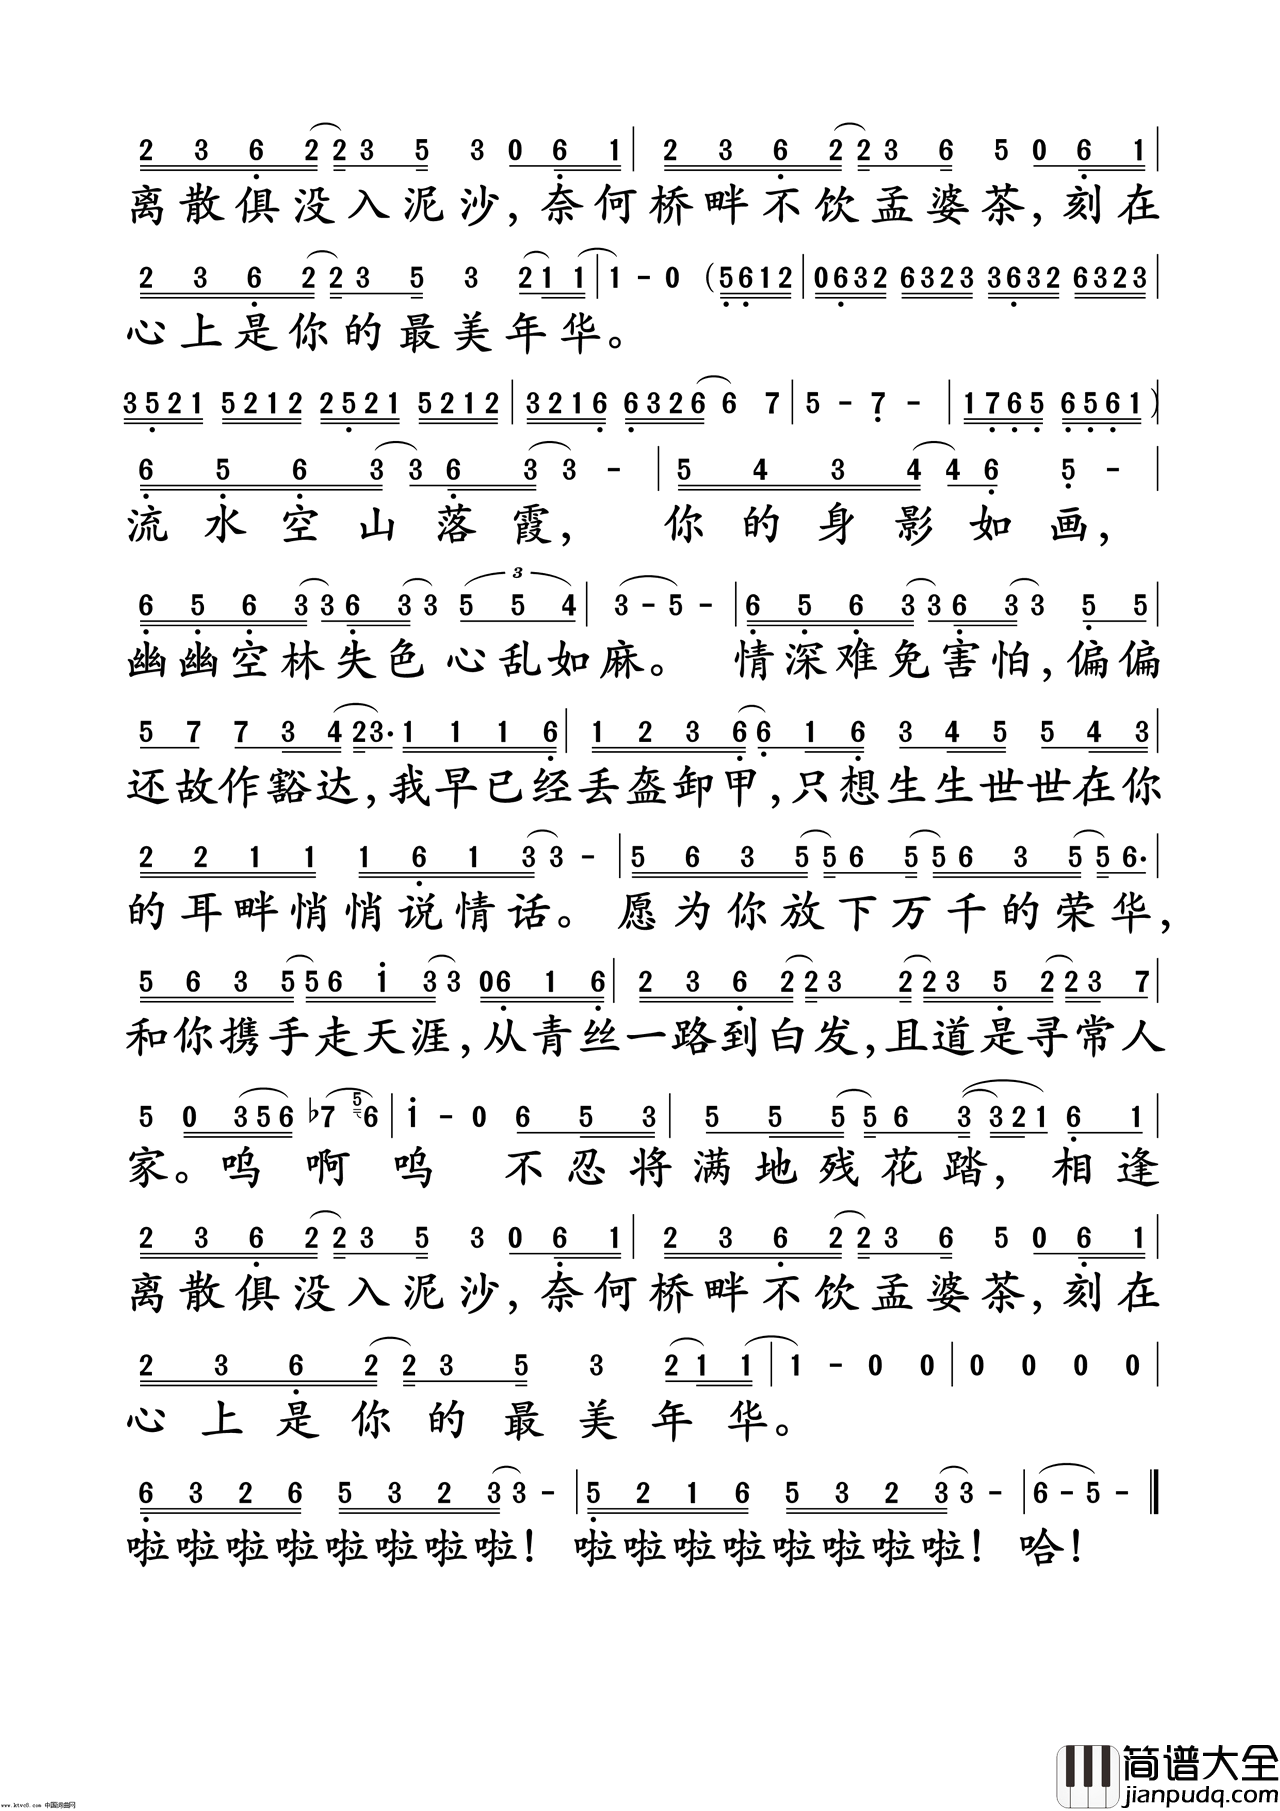 2 3 6 2 2 3 5 3 0 6 1 | 2 3 6 2 2 3 6 5 0 6 1 |
离散俱没入泥沙,奈何桥畔不饮孟婆茶,刻在
2 3 6 2 2 3 5 3 2 1 1 | 1 - 0 (5612 | 0632 6323 3632 6323 |
心上是你的最美年华。
3521 5212 2521 5212 | 3216 6326 6 7 | 5 - 7 - | 1765 6561)
6 5 6 3 3 6 3 3 - | 5 4 3 4 4 6 5 - |
流水空山落霞, 你的身影如画,
3
6 5 6 3 3 6 3 3 5 5 4 | 3 - 5 - | 6 5 6 3 3 6 3 3 5 5 |
幽幽空林失色心乱如麻。 情深难免害怕,偏偏
5 7 7 3 4 2 3. 1 1 1 6 | 1 2 3 6 6 1 6 3 4 5 5 4 3 |
还故作豁达,我早已经丢盔卸甲,只想生生世世在你
2 2 1 1 1 6 1 3 3 - | 5 6 3 5 5 6 5 5 6 3 5 5 6. |
的耳畔悄悄说情话。愿为你放下万千的荣华,
5 6 3 5 5 6 i 3 3 0 6 1 6 | 2 3 6 2 2 3 2 2 3 5 2 2 3 7 |
和你携手走天涯,从青丝一路到白发,且道是寻常人
5 0 3 5 6 ♭7 5 6 | i - 0 6 5 3 | 5 5 5 5 6 3 3 2 1 6 1 |
家。呜 啊 呜 不忍将满地残花踏,相逢
2 3 6 2 2 3 5 3 0 6 1 | 2 3 6 2 2 3 6 5 0 6 1 |
离散俱没入泥沙,奈何桥畔不饮孟婆茶,刻在
2 3 6 2 2 3 5 3 2 1 1 | 1 - 0 0 | 0 0 0 0 |
心上是你的最美年华。
6 3 2 6 5 3 2 3 3 - | 5 2 1 6 5 3 2 3 3 - | 6 - 5 - ‖
啦啦啦啦啦啦啦啦! 啦啦啦啦啦啦啦啦! 哈!
简谱大全
jianpudq.com
www.ktvc8.com 中国词曲网